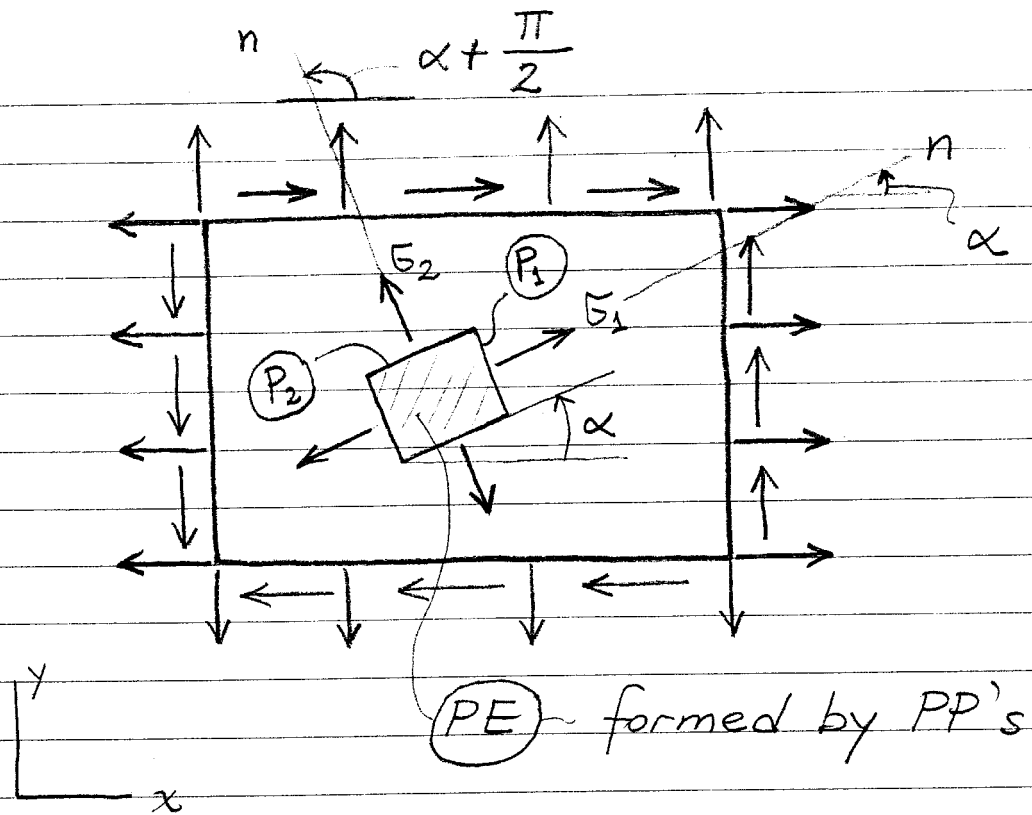 n
α + π/2
n
α
σ2
P1
σ1
P2
α
y
x
PE - formed by PP's